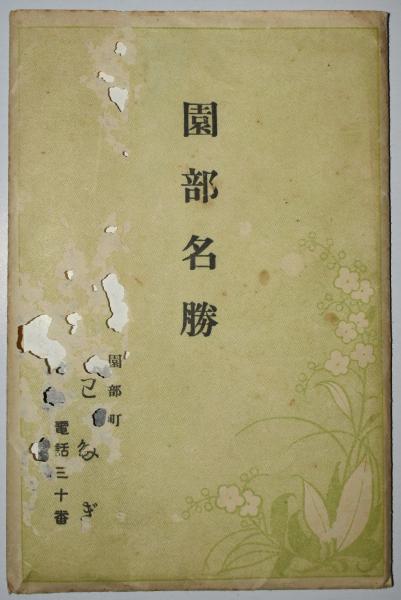 園部名勝
園部町
なぎ
電話三十番